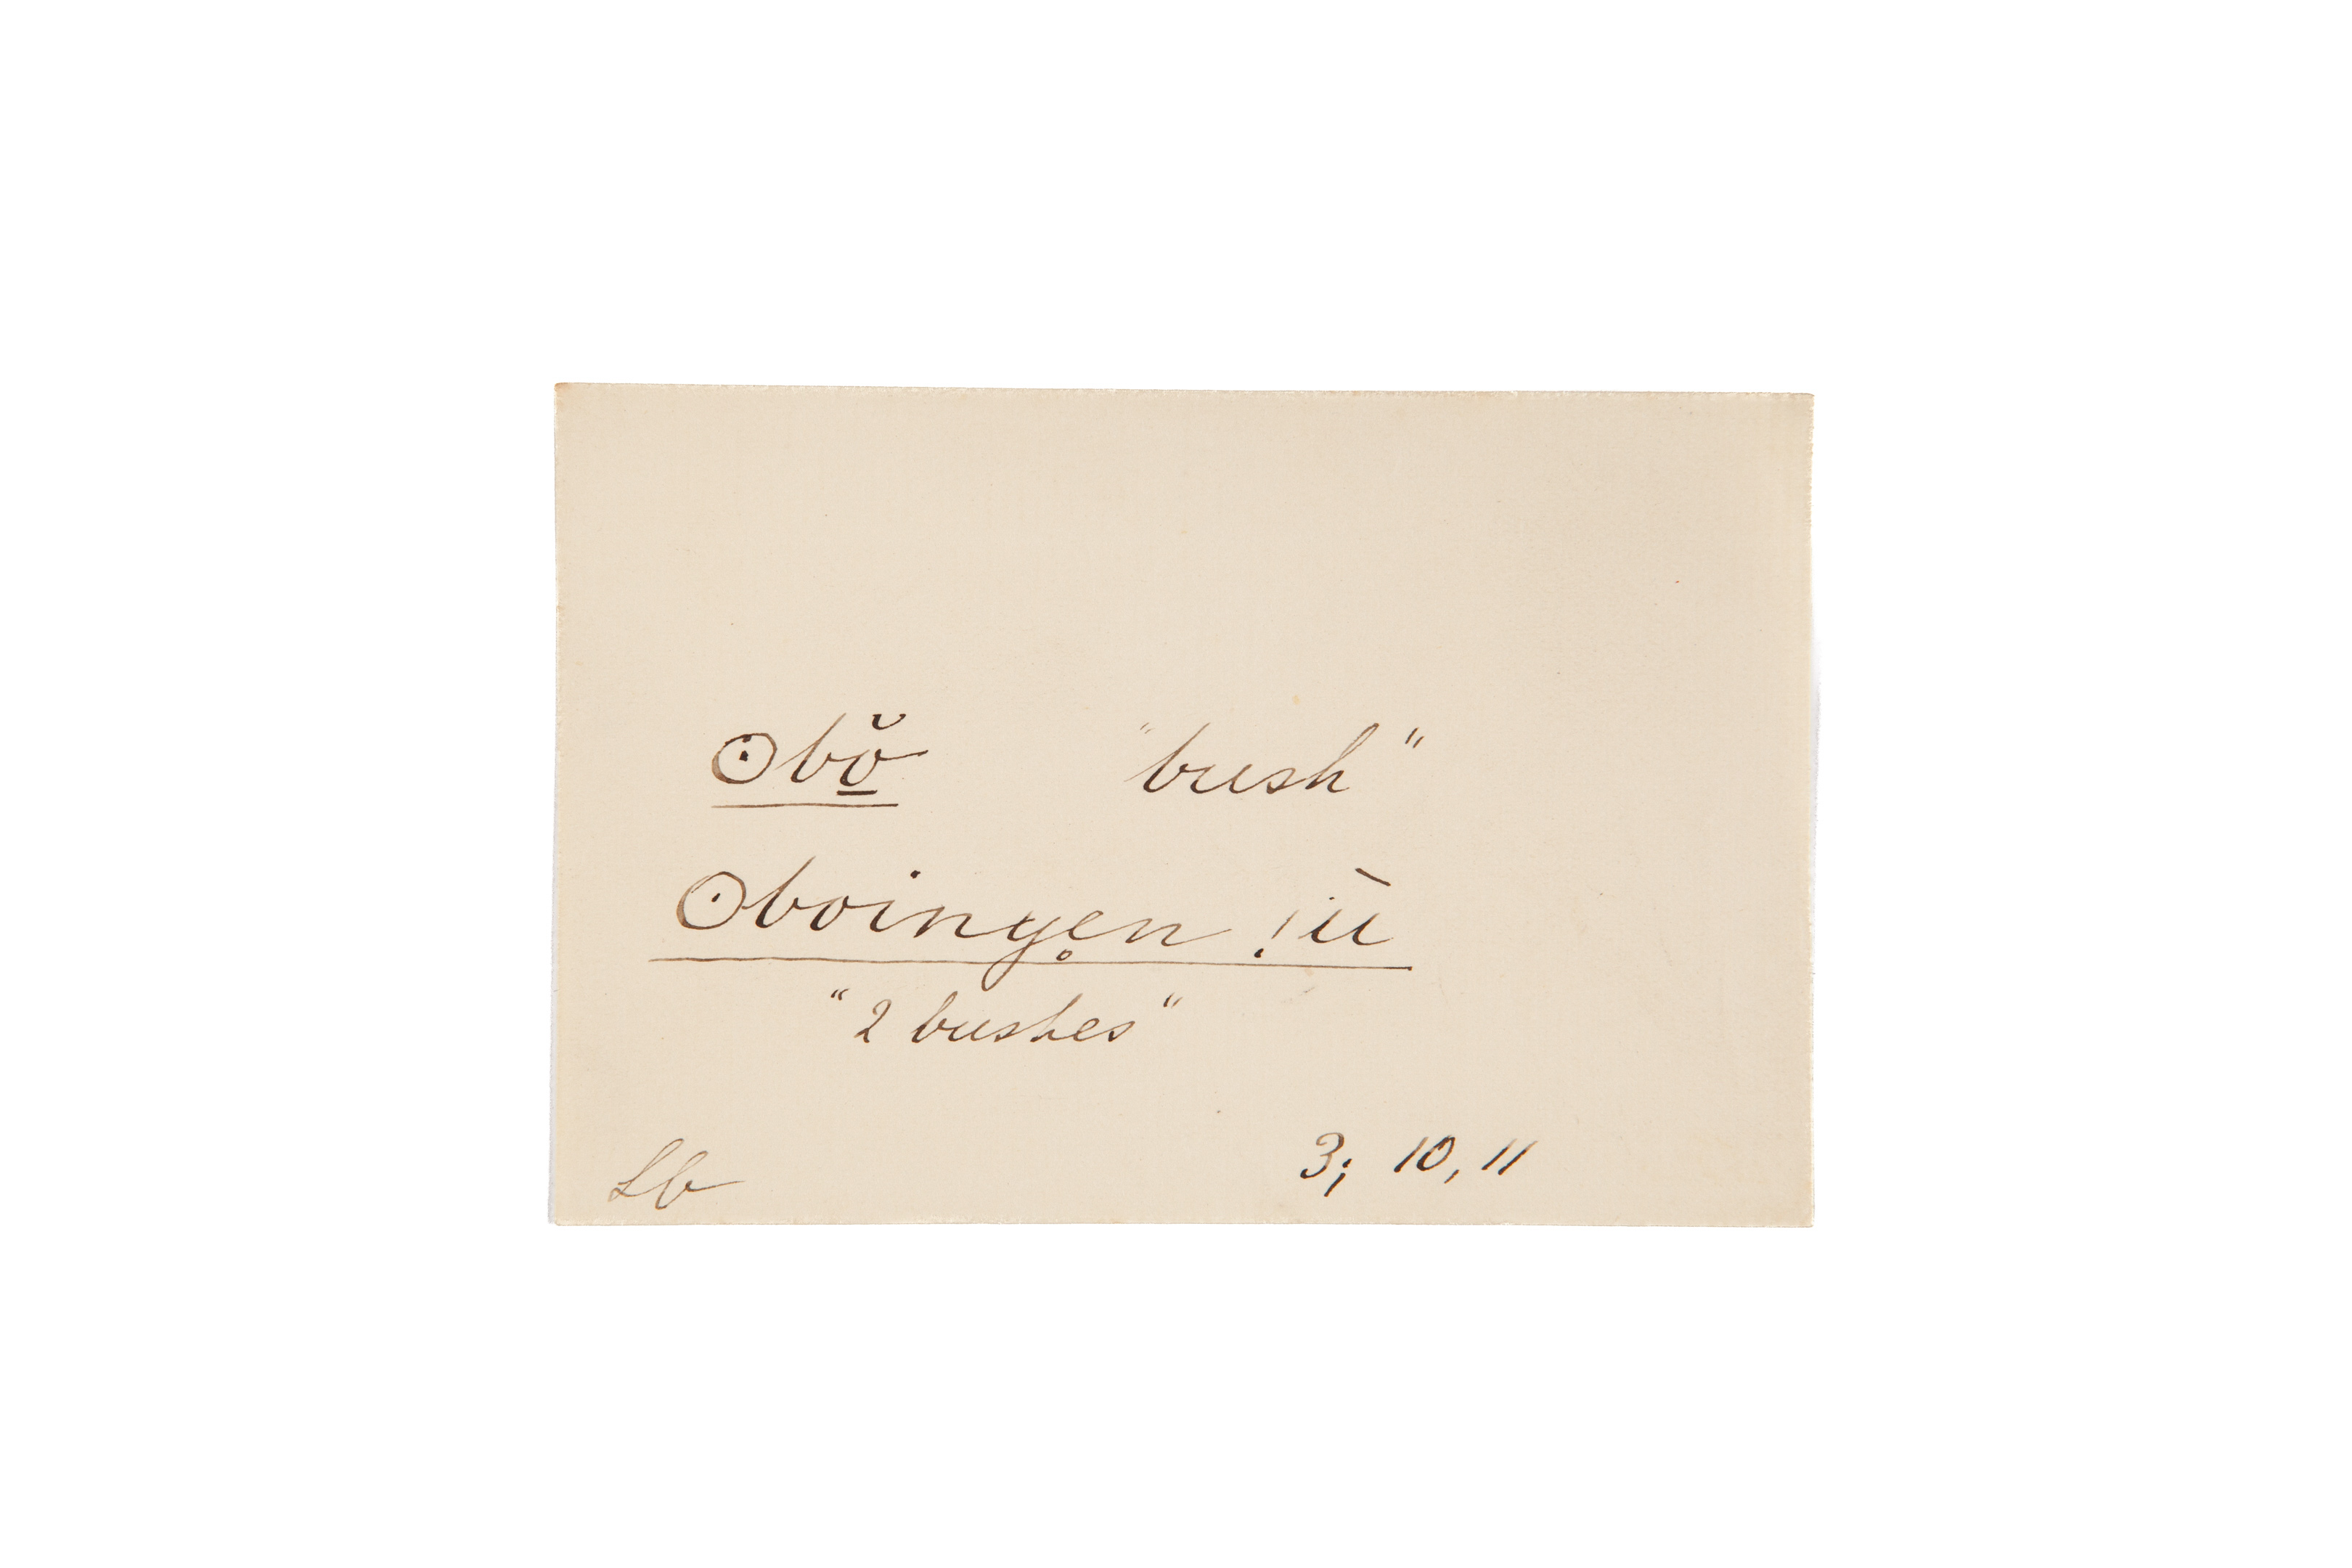 ʘbŏ̠ "bush"
ʘboinye̥n !ū
"2 bushes"
Lb 3; 10, 11